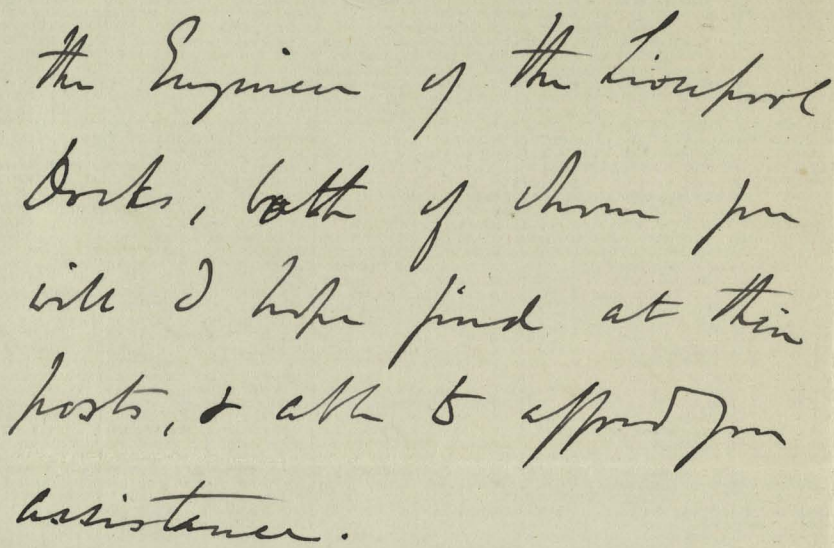 the Engineer of the Liverpool
Docks, both of whom you
will I hope find at their
posts, & able to afford you
assistance.